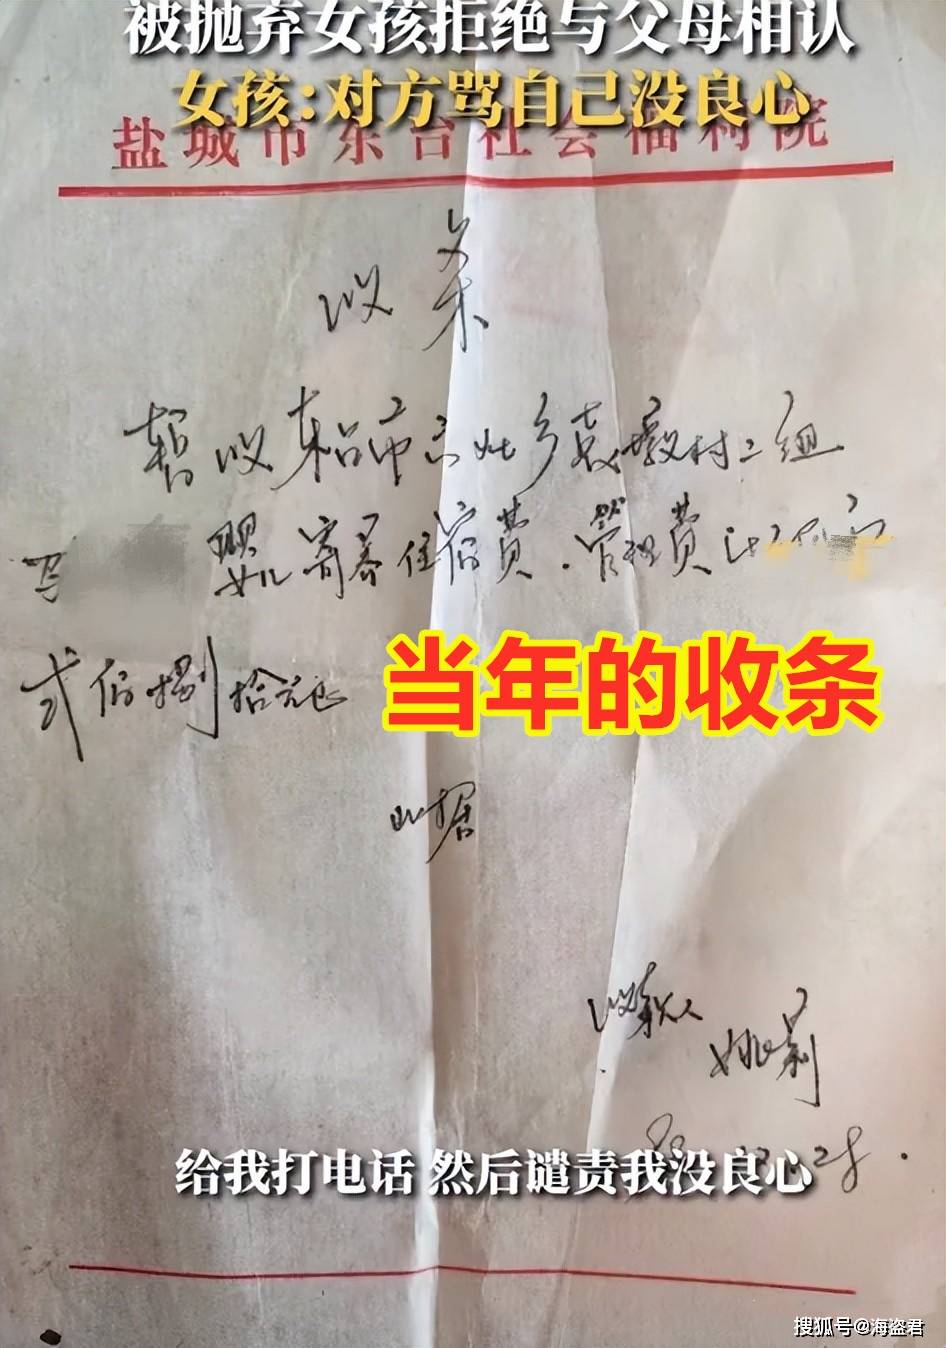 被抛弃女孩拒绝与父母相认
女孩:对方骂自己没良心
盐城市东台社会福利院
收条
暂收东台市 乡 墩村二组
婴儿寄养住宿费.管理费计
弍佰捌拾元正
当年的收条
此据
收款人
姚莉
28.
给我打电话 然后谴责我没良心
搜狐号@海盗君